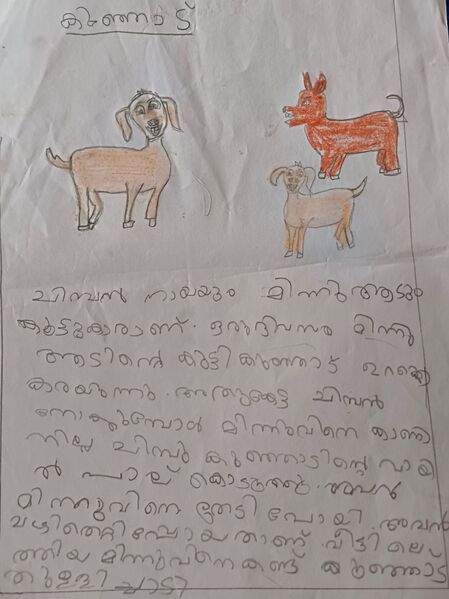 കുഞ്ഞാട്
ചിമ്പൻ നായയും മിന്നു ആടും
കൂട്ടുകാരാണ്. ഒരുദിവസം മിന്നു
ആടിൻ്റെ കുട്ടി കുഞ്ഞാട് ഉറക്കെ
കരയുന്നു. അതുകേട്ട ചിമ്പൻ
നോക്കുമ്പോൾ മിന്നുവിനെ കാണാ
നില്ല ചിമ്പു കുഞ്ഞാടിൻ്റെ വായി
ൽ പാല് കൊടുത്തു. അവൻ
മിന്നുവിനെ തേടി പോയി. അവൻ
വഴിതെറ്റി പോയതാണ്. വീട്ടിലെ
ത്തിയ മിന്നുവിനെ കണ്ട് കുഞ്ഞാട്
തുള്ളി ച്ചാടി